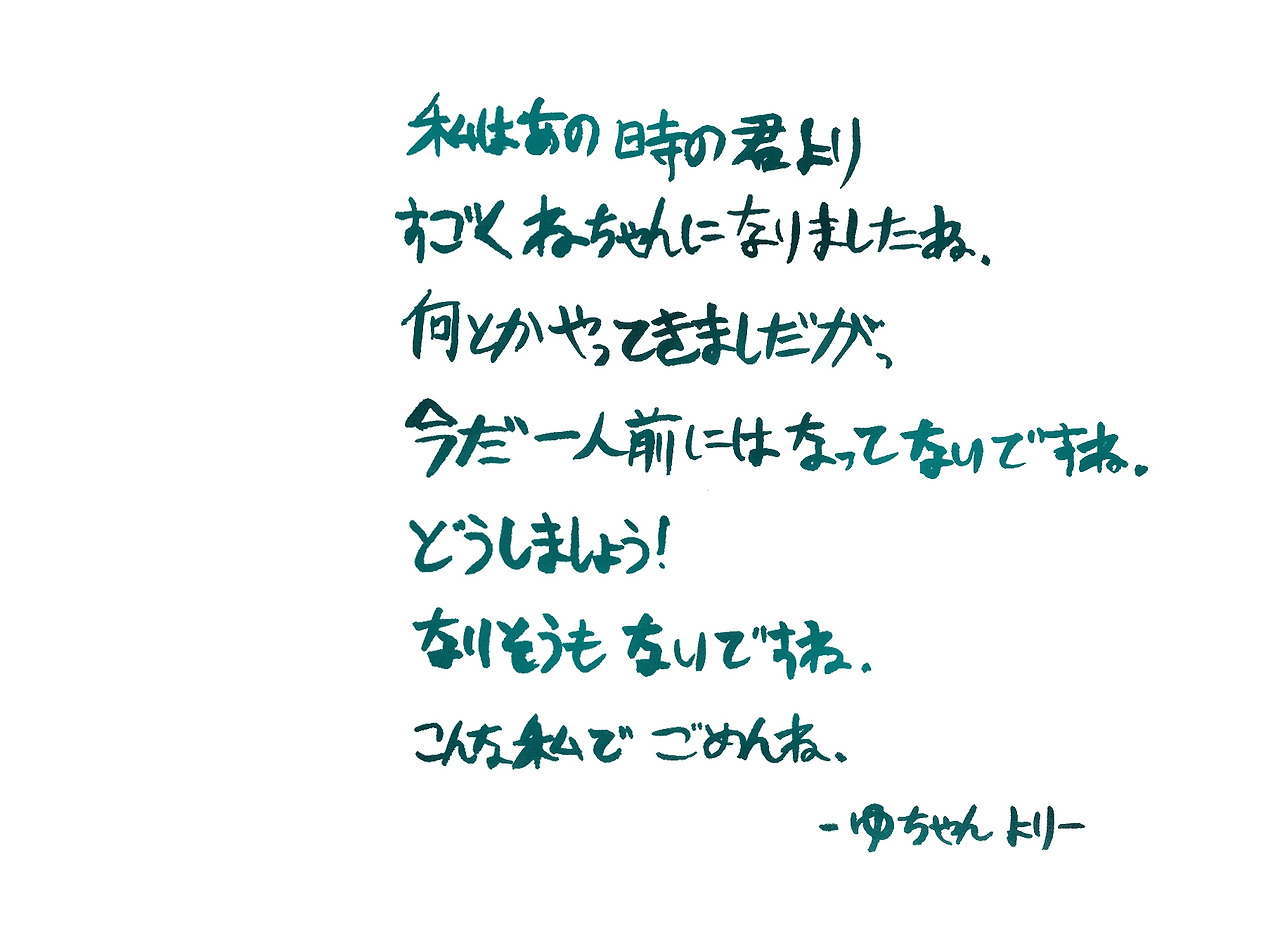 私はあの時の君より
すごくねちゃんになりましたね.
何とかやってきましだが、
今だ一人前にはなってないですね.
どうしましょう!
なりそうもないですね.
こんな私でごめんね.
-ゆちゃんより-